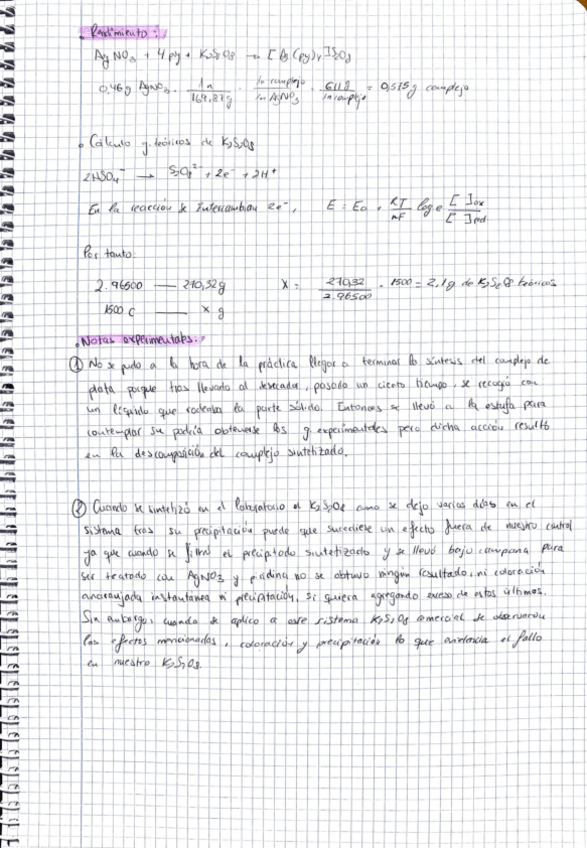 . Rendimiento:
AgNO3 + 4 py + K2S2O8 → [Ag(py)4]S2O8
0,46 g AgNO3 · 1n / 169,87g · 1n complejo / 1n AgNO3 · 611g / 1n complejo = 0,515 g complejo
. Cálculo g teóricos de K2S2O8
2HSO4⁻ → S2O8²⁻ + 2e⁻ + 2H⁺
En la reacción se intercambian 2e⁻, E = E0 + RT/nF log e [ ]ox / [ ]red
Por tanto:
2.96500 — 270,32g X = 270,32 / 2.96500 · 1500 = 2,1g de K2S2O8 teóricos
1500 C — x g
. Notas experimentales:
① No se pudo a la hora de la práctica llegar a terminar la síntesis del complejo de
plata porque tras llevarlo al desecador, pasado un cierto tiempo, se recogió con
un líquido que rodeaba la parte sólida. Entonces se llevó a la estufa para
contemplar su podría obtenerse los g experimentales pero dicha acción resultó
en la descomposición del complejo sintetizado.
② Cuando se sintetizó en el laboratorio el K2S2O8 como se dejo varios días en el
sistema tras su precipitación puede que sucediese un efecto fuera de nuestro control
ya que cuando se filtró el precipitado sintetizado y se llevó bajo campana para
ser tratado con AgNO3 y piridina no se obtuvo ningún resultado, ni coloración
anaranjada instantánea ni precipitación, si quiera agregando exceso de estos últimos.
Sin embargo, cuando se aplico a este sistema K2S2O8 comercial se observaron
los efectos mencionados, coloración y precipitación lo que evidencia el fallo
en nuestro K2S2O8.